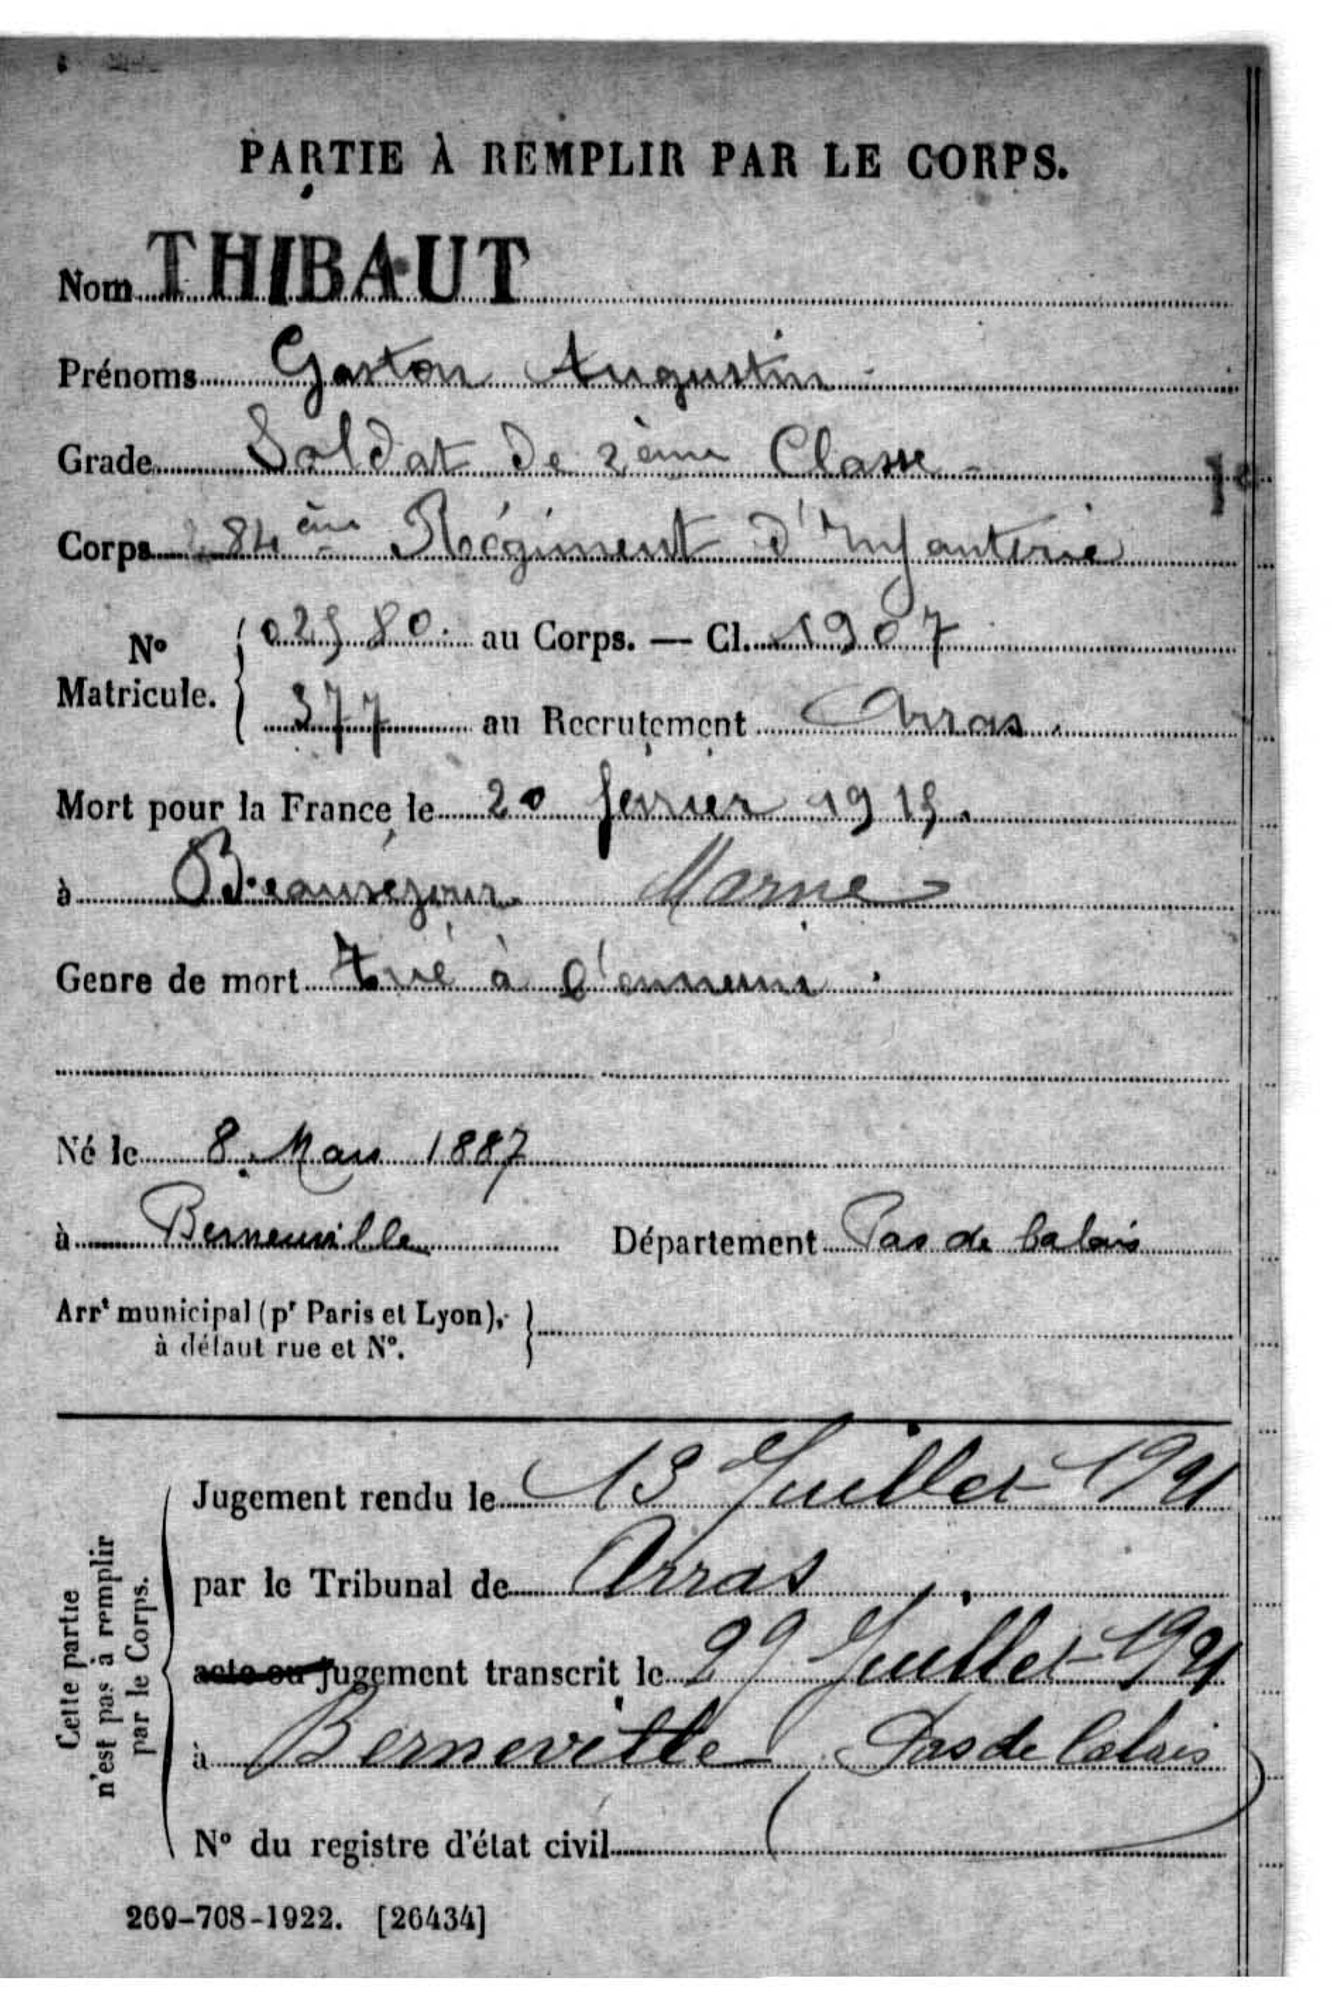 PARTIE À REMPLIR PAR LE CORPS.
Nom THIBAUT
Prénoms Gaston Augustin
Grade Soldat de 2ème Classe
Corps 84ème Régiment d'Infanterie
N° Matricule. { 02580 au Corps. — Cl. 1907
377 au Recrutement Arras.
Mort pour la France le 20 février 1915.
à Beauséjour Marne
Genre de mort tué à l'ennemi.
Né le 8 Mars 1887
à Berneuville Département Pas de Calais
Arrt municipal (pr Paris et Lyon), }
à défaut rue et N°.
Cette partie n'est pas à remplir par le Corps.
Jugement rendu le 13 Juillet 1921
par le Tribunal de Arras
acte ou jugement transcrit le 29 Juillet 1921
à Berneville Pas de Calais
N° du registre d'état civil
269-708-1922. [26434]